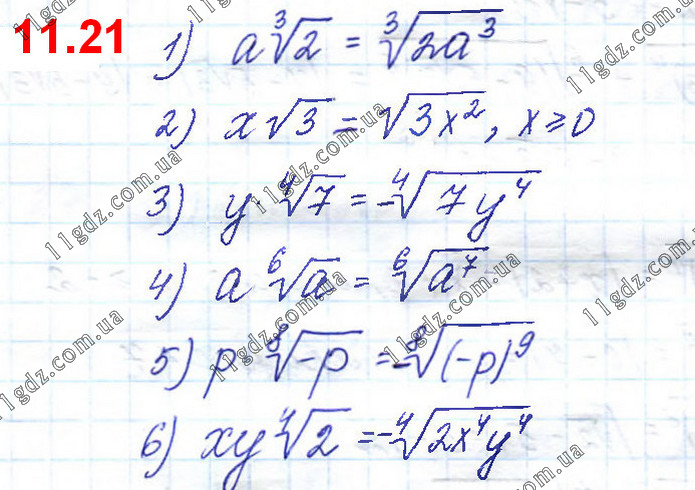 11.21
1) a∛2 = ∛2a³
2) x√3 = √3x², x ≥ 0
3) y·⁴√7 = -⁴√7y⁴
4) a ⁶√a = ⁶√a⁷
5) p·⁸√-p = -⁸√(-p)⁹
6) xy ⁴√2 = -⁴√2x⁴y⁴
11gdz.com.ua
11gdz.com.ua
11gdz.com.ua
11gdz.com.ua
11gdz.com.ua
11gdz.com.ua
11gdz.com.ua
11gdz.com.ua
11gdz.com.ua